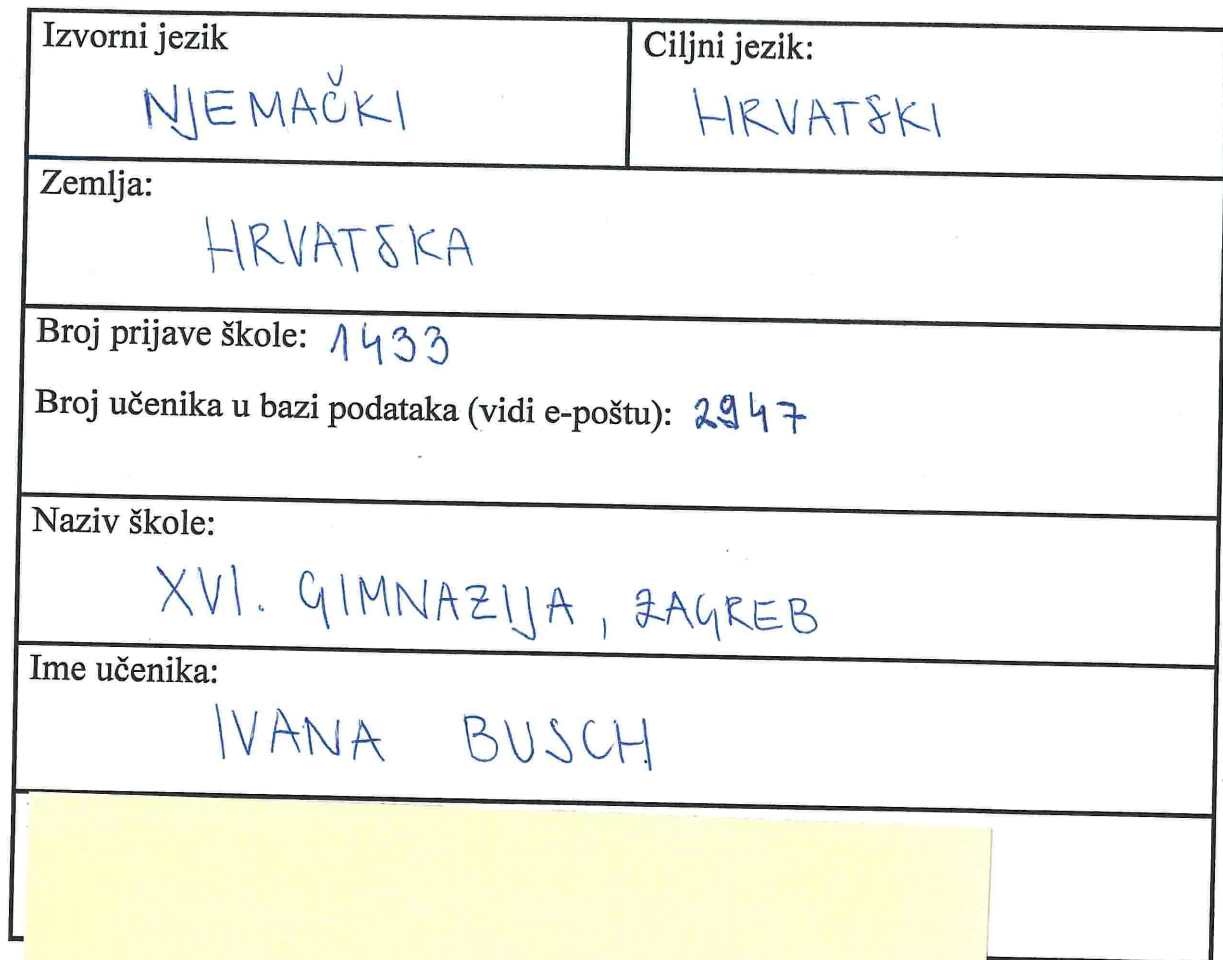 Izvorni jezik
NJEMAČKI
Ciljni jezik:
HRVATSKI
Zemlja:
HRVATSKA
Broj prijave škole: 1433
Broj učenika u bazi podataka (vidi e-poštu): 2947
Naziv škole:
XVI. GIMNAZIJA, ZAGREB
Ime učenika:
IVANA BUSCH